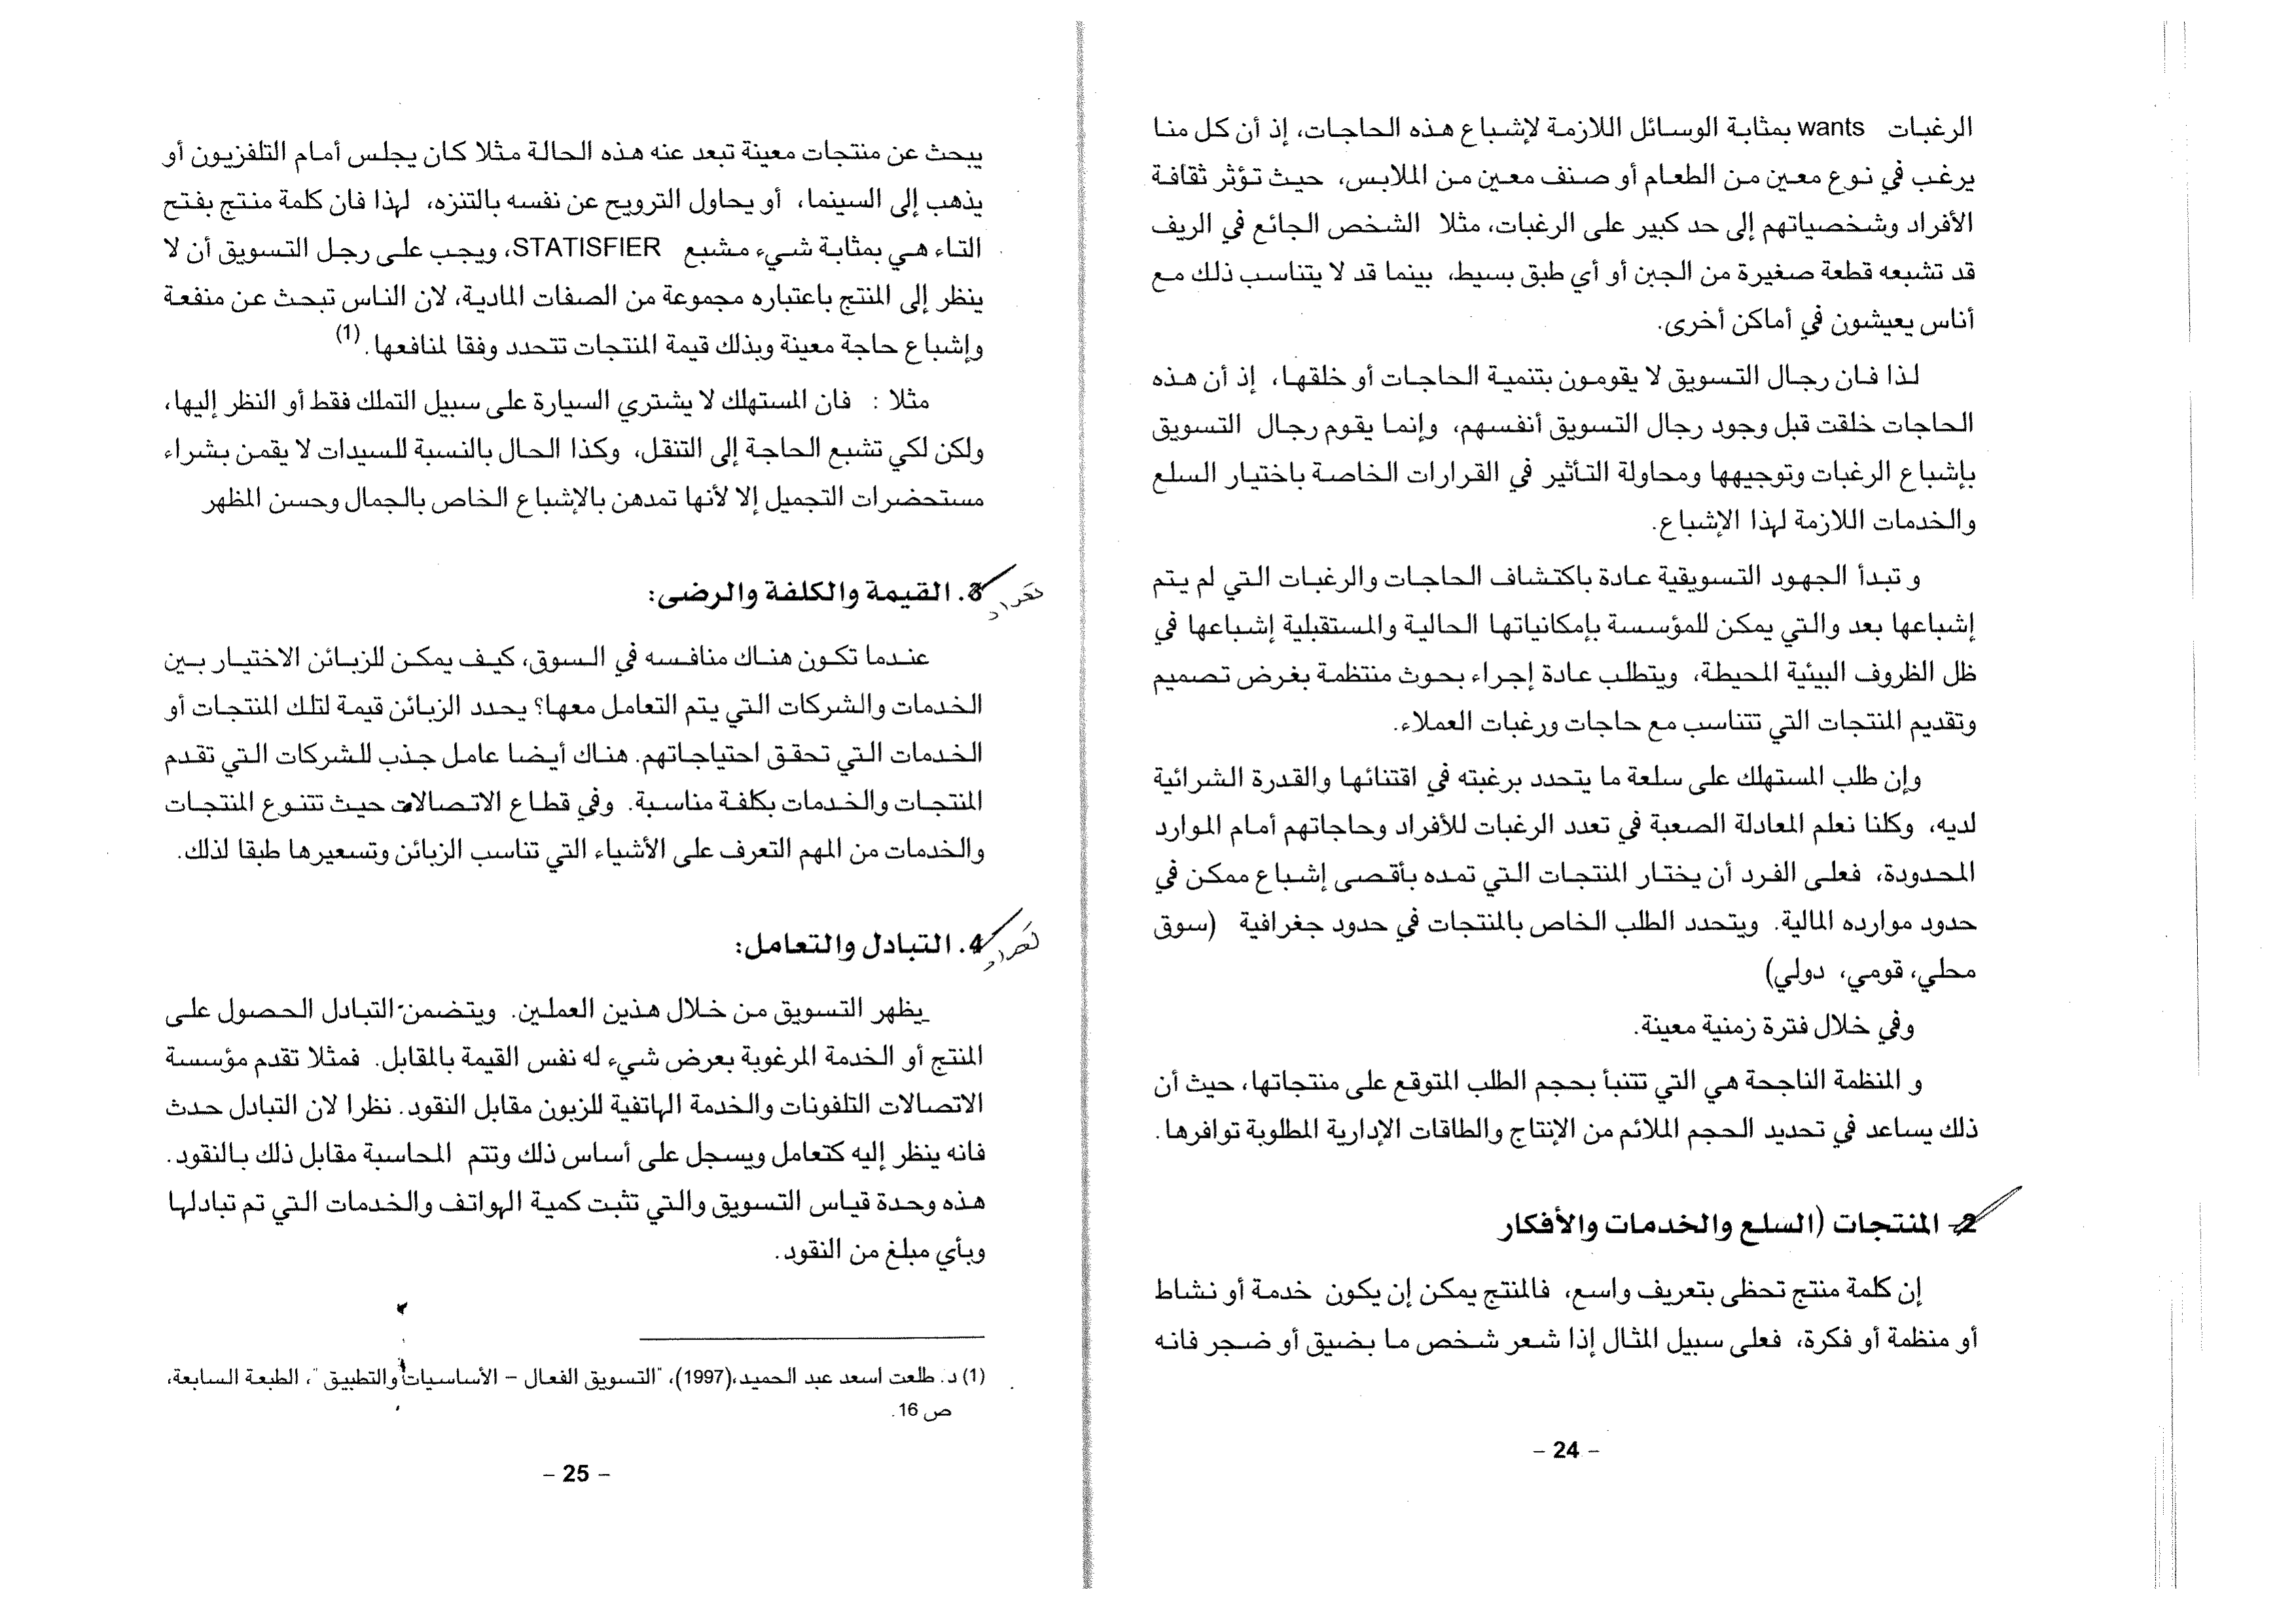 الرغبات wants بمثابة الوسائل اللازمة لإشباع هذه الحاجات، إذ أن كل منا
يرغب في نوع معين من الطعام أو صنف معين من الملابس، حيث تؤثر ثقافة
الأفراد وشخصياتهم إلى حد كبير على الرغبات، مثلا الشخص الجائع في الريف
قد تشبعه قطعة صغيرة من الجبن أو أي طبق بسيط، بينما قد لا يتناسب ذلك مع
أناس يعيشون في أماكن أخرى.
لذا فان رجال التسويق لا يقومون بتنمية الحاجات أو خلقها، إذ أن هذه
الحاجات خلقت قبل وجود رجال التسويق أنفسهم، وإنما يقوم رجال التسويق
بإشباع الرغبات وتوجيهها ومحاولة التأثير في القرارات الخاصة باختيار السلع
والخدمات اللازمة لهذا الإشباع.
و تبدأ الجهود التسويقية عادة باكتشاف الحاجات والرغبات التي لم يتم
إشباعها بعد والتي يمكن للمؤسسة بإمكانياتها الحالية والمستقبلية إشباعها في
ظل الظروف البيئية المحيطة، ويتطلب عادة إجراء بحوث منتظمة بغرض تصميم
وتقديم المنتجات التي تتناسب مع حاجات ورغبات العملاء.
وإن طلب المستهلك على سلعة ما يتحدد برغبته في اقتنائها والقدرة الشرائية
لديه، وكلنا نعلم المعادلة الصعبة في تعدد الرغبات للأفراد وحاجاتهم أمام الموارد
المحدودة، فعلى الفرد أن يختار المنتجات التي تمده بأقصى إشباع ممكن في
حدود موارده المالية. ويتحدد الطلب الخاص بالمنتجات في حدود جغرافية (سوق
محلي، قومي، دولي)
وفي خلال فترة زمنية معينة.
و المنظمة الناجحة هي التي تتنبأ بحجم الطلب المتوقع على منتجاتها، حيث أن
ذلك يساعد في تحديد الحجم الملائم من الإنتاج والطاقات الإدارية المطلوبة توافرها.
2- المنتجات (السلع والخدمات والأفكار
إن كلمة منتج تحظى بتعريف واسع، فالمنتج يمكن إن يكون خدمة أو نشاط
أو منظمة أو فكرة، فعلى سبيل المثال إذا شعر شخص ما بضيق أو ضجر فانه
- 24 -
يبحث عن منتجات معينة تبعد عنه هذه الحالة مثلا كان يجلس أمام التلفزيون أو
يذهب إلى السينما، أو يحاول الترويح عن نفسه بالتنزه، لهذا فان كلمة منتج بفتح
التاء هي بمثابة شيء مشبع STATISFIER، ويجب على رجل التسويق أن لا
ينظر إلى المنتج باعتباره مجموعة من الصفات المادية، لان الناس تبحث عن منفعة
وإشباع حاجة معينة وبذلك قيمة المنتجات تتحدد وفقا لمنافعها. (1)
مثلا : فان المستهلك لا يشتري السيارة على سبيل التملك فقط أو النظر إليها،
ولكن لكي تشبع الحاجة إلى التنقل، وكذا الحال بالنسبة للسيدات لا يقمن بشراء
مستحضرات التجميل إلا لأنها تمدهن بالإشباع الخاص بالجمال وحسن المظهر
تعداد
3. القيمة والكلفة والرضى:
عندما تكون هناك منافسه في السوق، كيف يمكن للزبائن الاختيار بين
الخدمات والشركات التي يتم التعامل معها؟ يحدد الزبائن قيمة لتلك المنتجات أو
الخدمات التي تحقق احتياجاتهم. هناك أيضا عامل جذب للشركات التي تقدم
المنتجات والخدمات بكلفة مناسبة. وفي قطاع الاتصالات حيث تتنوع المنتجات
والخدمات من المهم التعرف على الأشياء التي تناسب الزبائن وتسعيرها طبقا لذلك.
تعداد
4. التبادل والتعامل:
يظهر التسويق من خلال هذين العملين. ويتضمن التبادل الحصول على
المنتج أو الخدمة المرغوبة بعرض شيء له نفس القيمة بالمقابل. فمثلا تقدم مؤسسة
الاتصالات التلفونات والخدمة الهاتفية للزبون مقابل النقود. نظرا لان التبادل حدث
فانه ينظر إليه كتعامل ويسجل على أساس ذلك وتتم المحاسبة مقابل ذلك بالنقود.
هذه وحدة قياس التسويق والتي تثبت كمية الهواتف والخدمات التي تم تبادلها
وبأي مبلغ من النقود.
(1) د. طلعت اسعد عبد الحميد،(1997)، "التسويق الفعال – الأساسيات والتطبيق "، الطبعة السابعة،
ص 16.
- 25 -